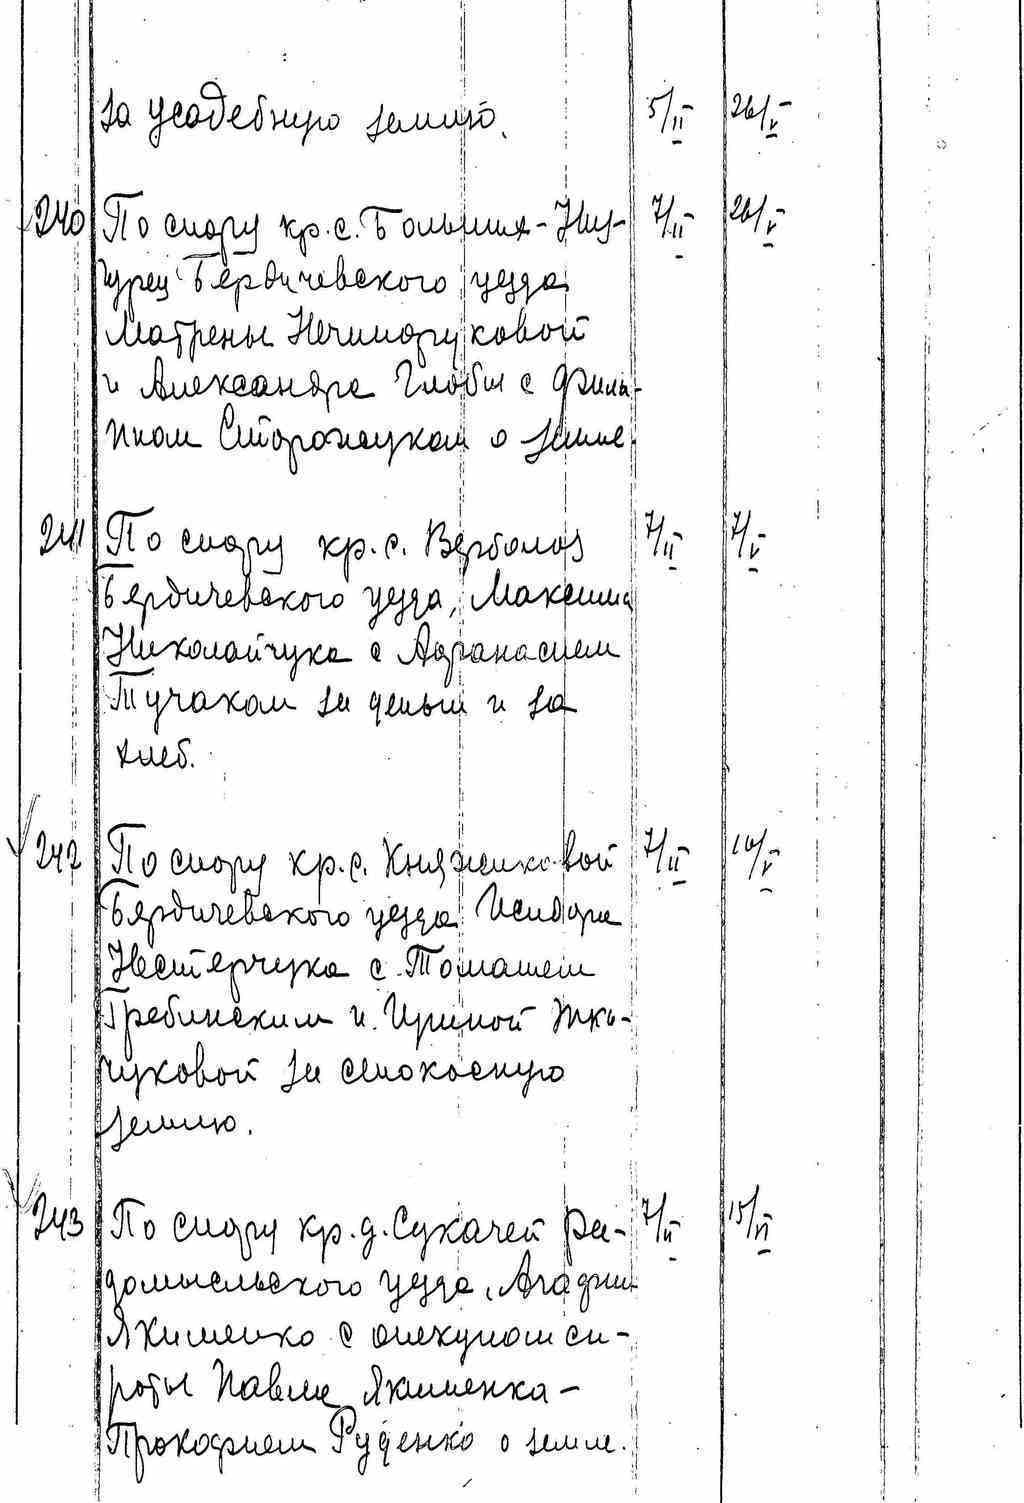 за усадебную землю. 5/II 26/V
240 По спору кр. с. Большия-Низ- 7/II 26/V
гурец Бердичевского уезда
Матрены Нечипоруковой
и Александра Глобы с Фили-
пком Сторожуком о земле.
241 По спору кр. с. Верболоз 7/II 7/V
Бердичевского уезда, Максима
Николайчука с Афанасием
Тучаком за деньги и за
хлеб.
242 По спору кр. с. Княжиковой 7/II 10/V
Бердичевского уезда Исидора
Нестерчука с Томашем
Гребинским и Ириной Ткa-
чуковой за сенокосную
землю.
243 По спору кр. д. Сукачей Ра- 7/II 15/VI
домысльского уезда, Агафии
Якименко с опекуном си-
роты Павла Якименка -
Прокофием Руденко о земле.